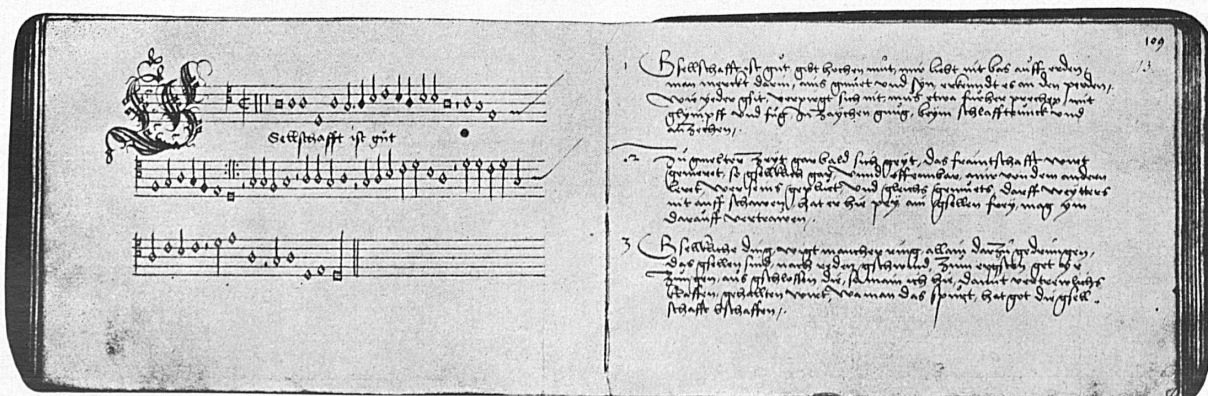 Gsellschafft ist gut
109
13
1 Gsellschafft ist gut gibt hochen mut, mir liebt nit bas auff erden,
man in darin, aus gmuet vnd syn, erkundt es an den perden,
wie yeder gsit, verpirgt sich nit, mus etwa fürher prechen, mit
glympff vnd fug zu zaychen gnug, beym schlafftrunck vnd
an zechen,
2 Zu gmelter zeyt gar bald sich geyt, das fraintschafft wirt
gemeret, so gsellen gar vnd offennbar, ainer von dem andern
leret, wer seins geplüet vnd gleichs gemüets, darff weytters
nit auff schawen, hat er hie pey ain gsellen frey, mag ym
darauff vertrawen,
3 Gselliche ding wigt mancher ring, allain darzu gedrungen,
das gsellen sind, nach reden gschwind zum ersten get
zungen, aus gschlossen die, so main ich hie, damit
klaffen, gehallten wirt, wa man das spürt, hat got die gsell
schafft bschaffen,